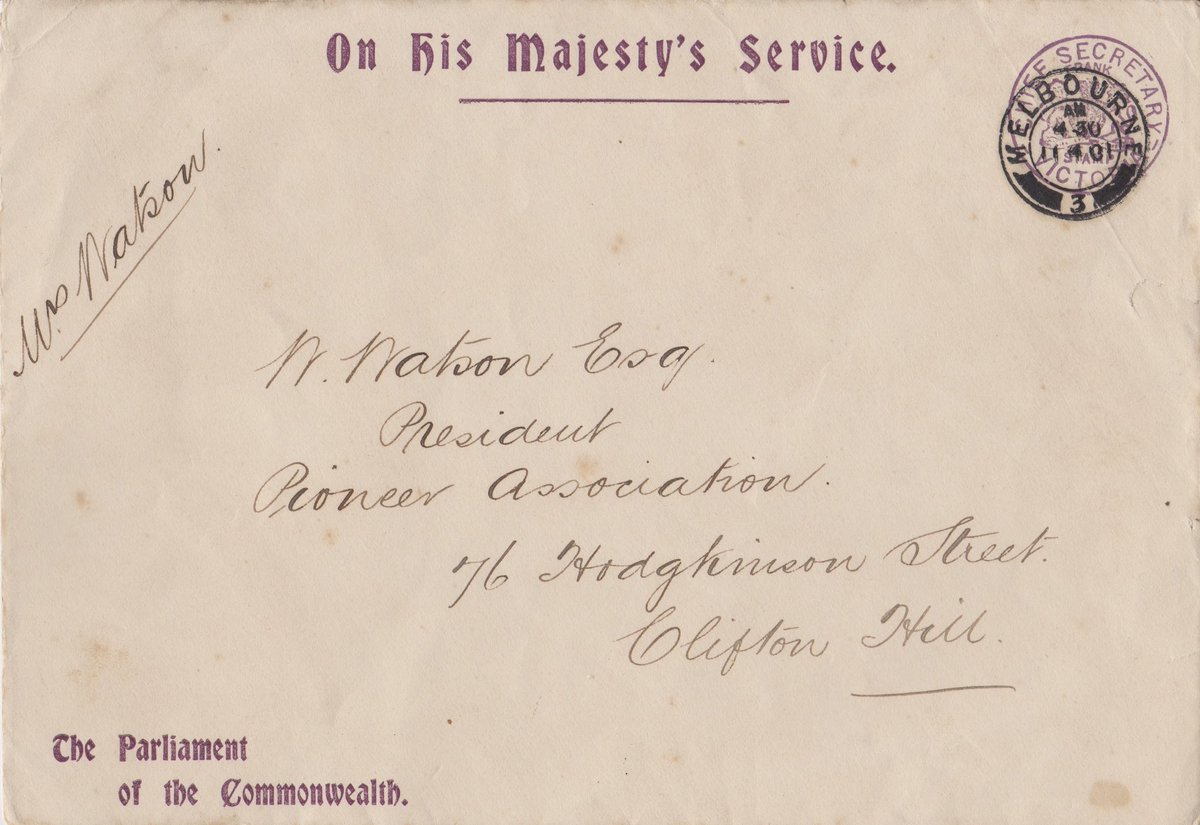 On His Majesty's Service.
SECRETARY
FRANK
STAMP
MELBOURNE
AM
4 30
11 4 01
3
Mrs Watson.
W. Watson Esq.
President
Pioneer Association.
76 Hodgkinson Street.
Clifton Hill.
The Parliament
of the Commonwealth.